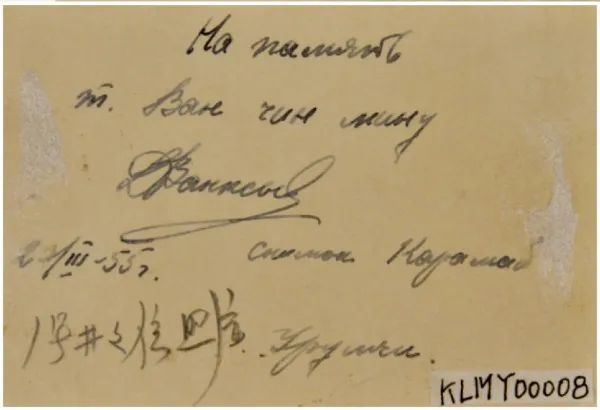 На память
т. Ван чин мину
2 /III-55 г. снимок Карамай
1号井之 四
Урумчи.
KLMY00008